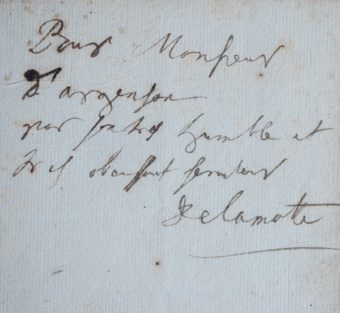 Pour Monsieur
D'argenson
par son tres humble et
tres obeissant serviteur
Delamotte